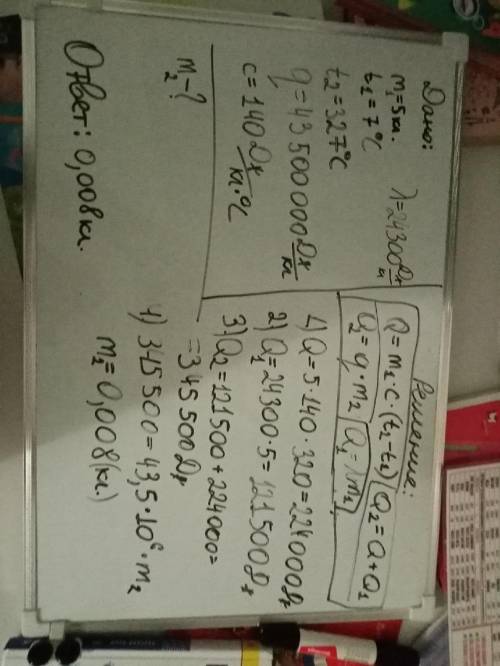 Дано:
m₁=5кг.
t₁=7°C
t₂=327°C
q=43500000 Дж/кг
c=140 Дж/кг·°C
λ=24300 Дж/кг
m₂-?
Решение:
Q=m₁·c·(t₁-t₂) Q₂=Q+Q₁
Q₂=q·m₂ Q₁=λm₁
1) Q=5·140·320=224000Дж
2) Q₁=24300·5=121500Дж
3) Q₂=121500+224000=
=345500Дж
4) 345500=43,5·10⁶·m₂
m₂=0,008(кг.)
Ответ: 0,008кг.